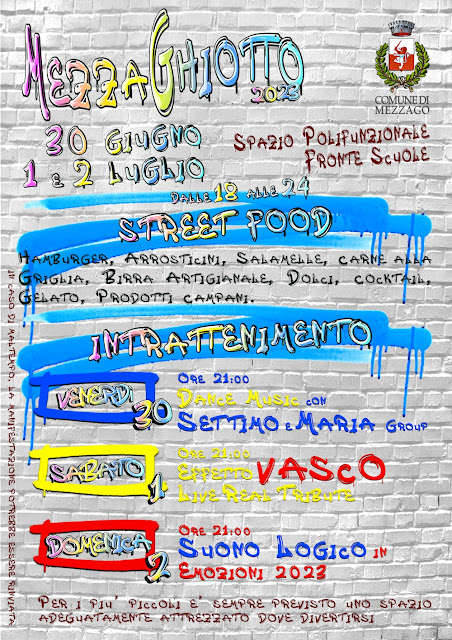 MezzaGhiotto
2023
COMUNE DI
MEZZAGO
30 Giugno
1 e 2 Luglio
Spazio Polifunzionale
Fronte Scuole
dalle 18 alle 24
Street Food
Hamburger, Arrosticini, Salamelle, carne alla
Griglia, Birra Artigianale, Dolci, cocktail,
Gelato, Prodotti campani.
Intrattenimento
Venerdì 30
Ore 21:00
Dance Music con
Settimo e Maria Group
Sabato 1
Ore 21:00
Effetto VASCO
Live Real Tribute
Domenica 2
Ore 21:00
Suono Logico in
Emozioni 2023
Per i più' piccoli e' sempre previsto uno spazio
adeguatamente attrezzato dove divertirsi
In caso di maltempo, la manifestazione potrebbe essere rinviata